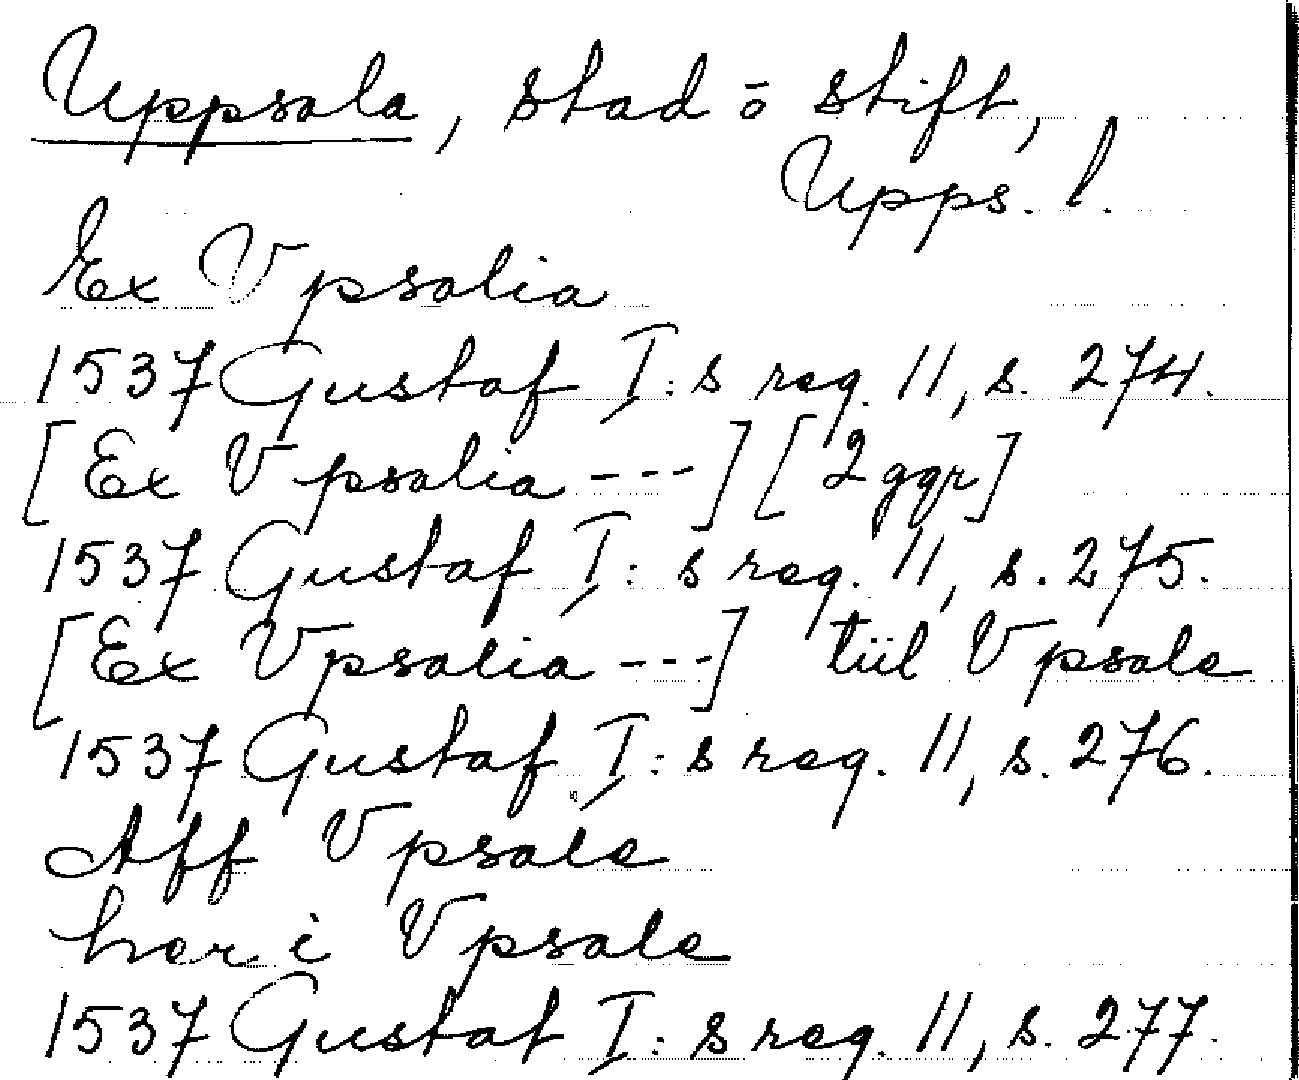 Uppsala, stad o stift,
Upps. l.
Ex Vpsalia
1537 Gustaf I:s reg. 11, s. 274.
[Ex Vpsalia ---] [2 ggr]
1537 Gustaf I:s reg. 11, s. 275.
[Ex Vpsalia ---] tiil Vpsale
1537 Gustaf I:s reg. 11, s. 276.
Aff Vpsale
her i Vpsale
1537 Gustaf I:s reg. 11, s. 277.